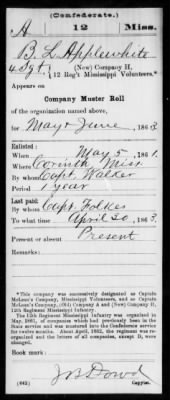 (Confederate.)
A 12 Miss.
B. L. Applewhite
4 Sgt, (New) Company H,
12 Reg't Mississippi Volunteers.*
Appears on
Company Muster Roll
of the organization named above,
for May & June, 1863
Enlisted:
When May 5, 1861.
Where Corinth Miss.
By whom Capt. Walker
Period 1 year
Last paid:
By whom Capt. Folkes
To what time April 30, 1863.
Present or absent Present
Remarks:
*This company was successively designated as Captain
McLean's Company, Mississippi Volunteers, and as Captain
McLean's Company, (Old) Company A and (New) Company H,
12th Regiment Mississippi Infantry.
The 12th Regiment Mississippi Infantry was organized in
May, 1861, of companies which had previously been in the
State service and was mustered into the Confederate service
for twelve months. About April, 1862, the regiment was re-
organized and the letters of all companies, except D, were
changed.
Book mark:
(642) Copyist.